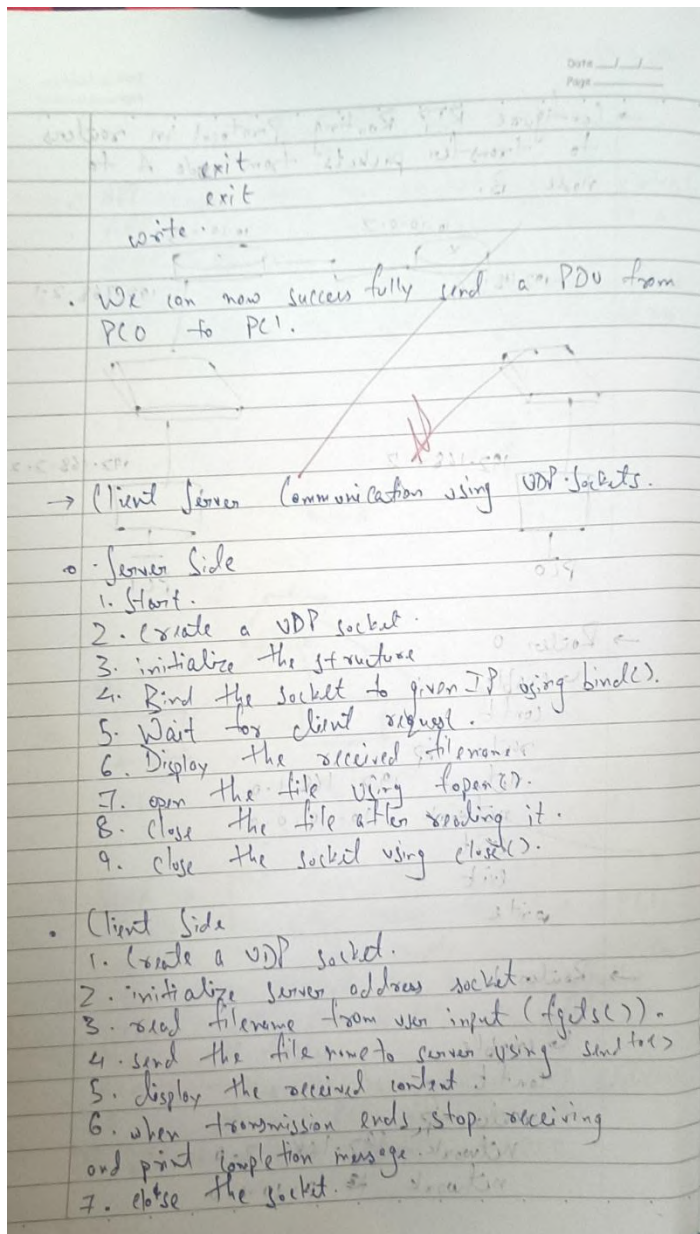 Date __/__/__
Page ____
exit
exit
write.
. We can now successfully send a PDU from
PC0 to PC1.
→ Client Server Communication using UDP Sockets.
Server Side
1. Start.
2. Create a UDP socket.
3. initialize the structure
4. Bind the socket to given IP using bind().
5. Wait for client request.
6. Display the received filename.
7. open the file using fopen().
8. Close the file after reading it.
9. close the socket using close().
. Client Side
1. Create a UDP socket.
2. initialize server address socket.
3. read filename from user input (fgets()).
4. send the file name to server using sendto()
5. display the received content.
6. when transmission ends, stop receiving
and print completion message.
7. close the socket.